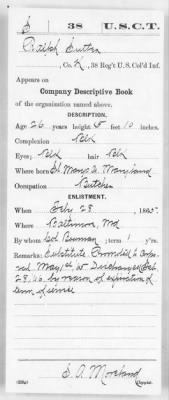 S 38 U.S.C.T.
Ralph Sutton
, Co. K, 38 Reg't U.S. Col'd Inf.
Appears on
Company Descriptive Book
of the organization named above.
DESCRIPTION.
Age 26 years; height 5 feet 10 inches.
Complexion Blk
Eyes; Blk hair Blk
Where born St Marys Co Maryland
Occupation Butcher
ENLISTMENT.
When Feby 28, 1865.
Where Baltimore, Md
By whom Col Bowman; term 1 y'rs.
Remarks: Substitute Promoted to Corpo
ral May 1st 65 Discharged Feb.
28, 66 by reason of expiration of
term of service
S. A. Moreland
Copyist.